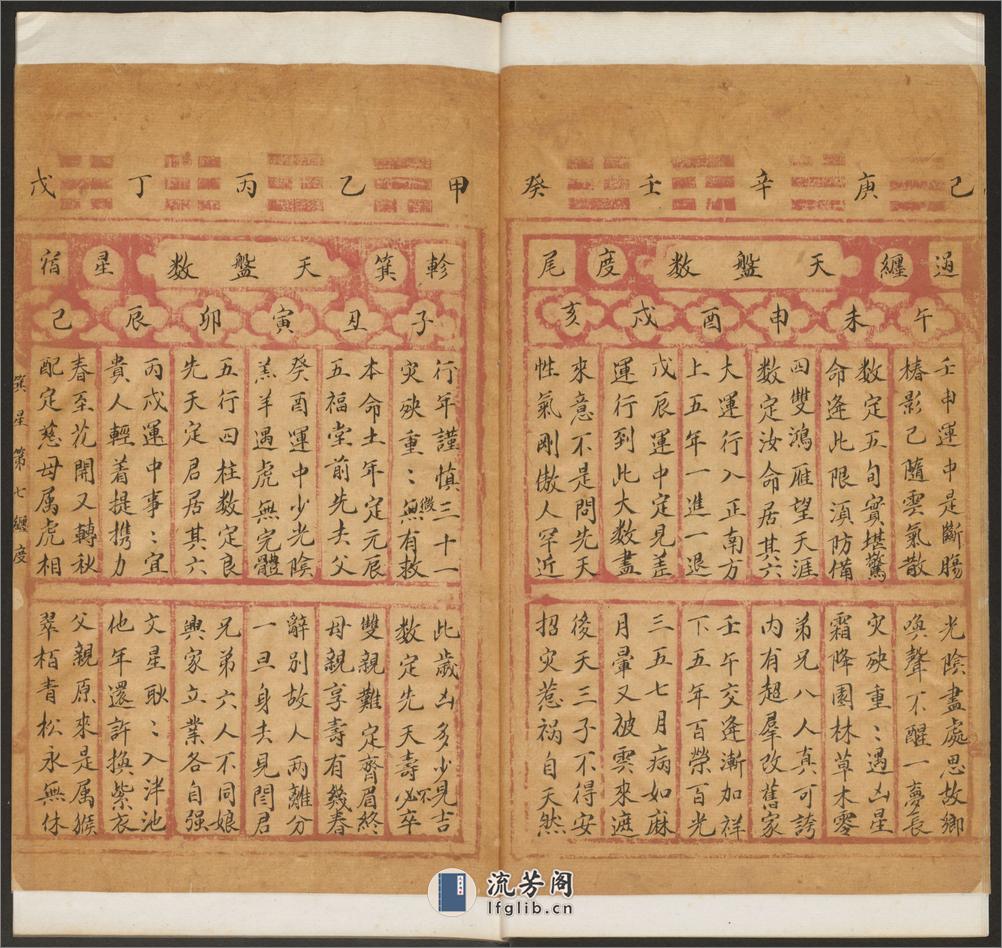 己 庚 辛 壬 癸
過 纏 天盤数 度 尾
午 未 申 酉 戌 亥
壬申運中是斷膓
椿影已隨雲氣散
数定五旬實堪驚
命逢此限湏防備
四雙鴻雁望天涯
数定汝命居其六
大運行入正南方
上五年一進一退
戊辰運中定見差
運行到此大数盡
來意不是問先天
性氣剛傲人罕近
光陰盡處思故鄉
喚聲不醒一夢長
灾殃重〻遇凶星
霜降園林草木零
弟兄八人真可誇
内有超羣改舊家
壬午交逢漸加祥
下五年百榮百光
三五七月病如麻
月暈又被雲來遮
後天三子不得安
招灾惹禍自天然
甲 乙 丙 丁 戊
軫 箕 天盤数 星 宿
子 丑 寅 卯 辰 巳
行年謹慎三十一
灾殃重〻微無有救
本命土年定元辰
五福堂前先去父
癸酉運中少光陰
羔羊遇虎無完體
五行四柱数定良
先天定君居其六
丙戌運中事〻宜
貴人輕着提携力
春至花開又轉秋
配定慈母属虎相
此歲凶多少見吉
数定先天壽不必卒
雙親難定齊眉終
母親享壽有幾春
辭別故人兩離分
一旦身去見閆君
兄弟六人不同娘
興家立業各自强
文星耿〻入泮池
他年還許換紫衣
父親原來是属猴
翠栢青松永無休
箕星第七纏度
流芳阁
lfglib.cn